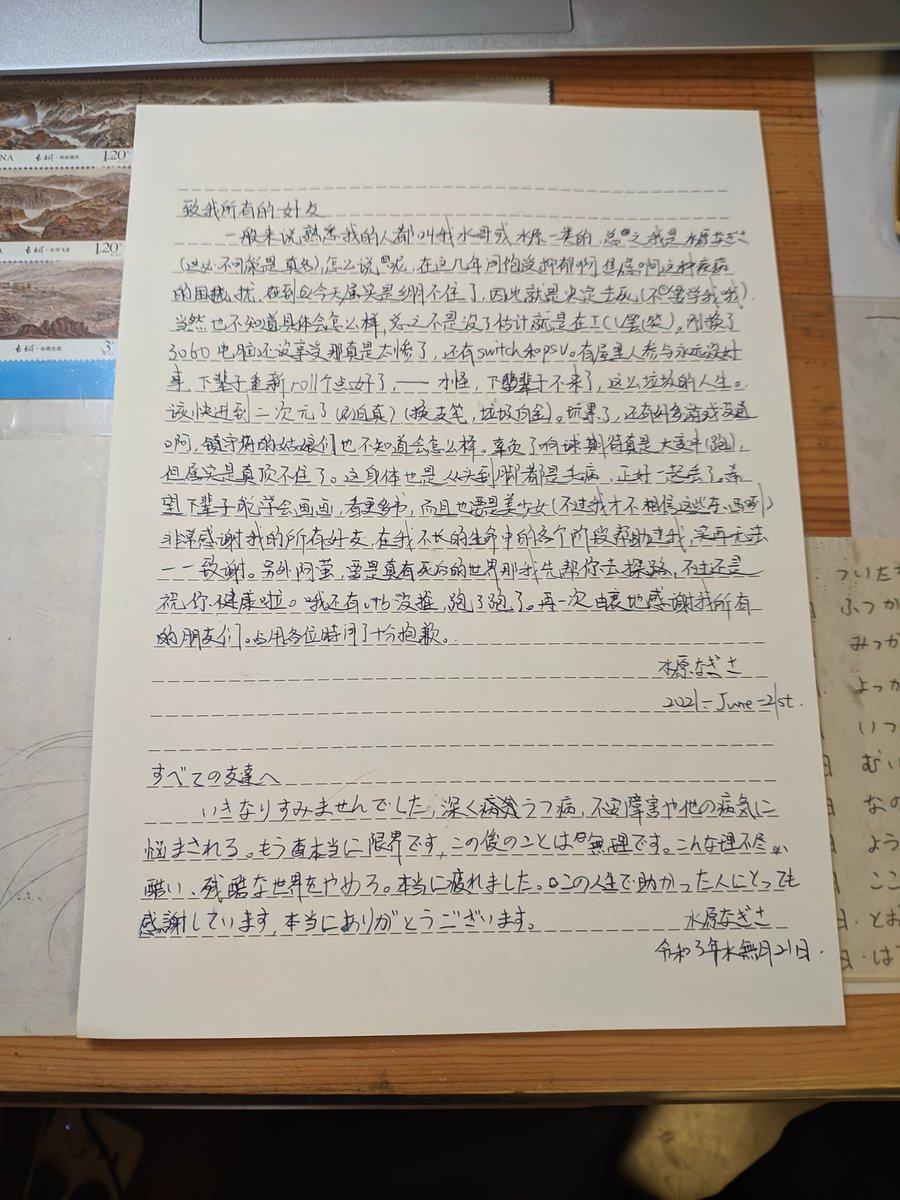 长城
1.20
长城
1.20
长城
致我所有的好友
一般来说熟悉我的人都叫我水哥或水原一类的,总之我是水原なぎさ
(这必不可能是真名),怎么说呢,在这几年间饱受抑郁啊焦虑啊这种疾病
的困扰,直到今天属实是绷不住了,因此就是决定去死(不要学我)
当然也不知道具体会怎么样,总之不是没了估计就是在ICU里(笑)。刚换了
3060电脑还没享受那真是太惨了,还有switch和psv。有屋里人参与永远没好
事,下辈子重新roll个点好了,——才怪,下辈子不来了,这么垃圾的人生。
该快进到二次元了(迫真)(换支笔,垃圾白金)。玩累了,还有好多游戏没通
啊,镇守府的姑娘们也不知道会怎么样。辜负了期待真是大变(跑),
但属实是真顶不住了。这身体也是从头到脚都是毛病,正好一起丢了。希
望下辈子能学会画画,看更多书,而且也要是美少女(不过我才不相信这些东西)
非常感谢我的所有好友,在我不长的生命中的各个阶段帮助过我,实再无法
一一致谢。另外阿萤,要是真有死后的世界那我先帮你去探路,不过还是
祝你健康啦。哦还有没推,跑了跑了。再一次由衷地感谢我所有
的朋友们。占用各位时间了十分抱歉。
水原なぎさ
2021-June-21st.
すべての友達へ
いきなりすみませんでした,深くうつ病,不安障害や他の病気に
悩まされる。もう本当に限界です,この後のことは無理です。こんな理不尽
酷い、残酷な世界をやめろ。本当に疲れました。この人生で助かった人にとても
感謝しています,本当にありがとうございます。
水原なぎさ
令和3年水無月21日.
ついたち
ふつか
みっか
よっか
いつ
むい
なの
よう
ここ
日. とお
日. は